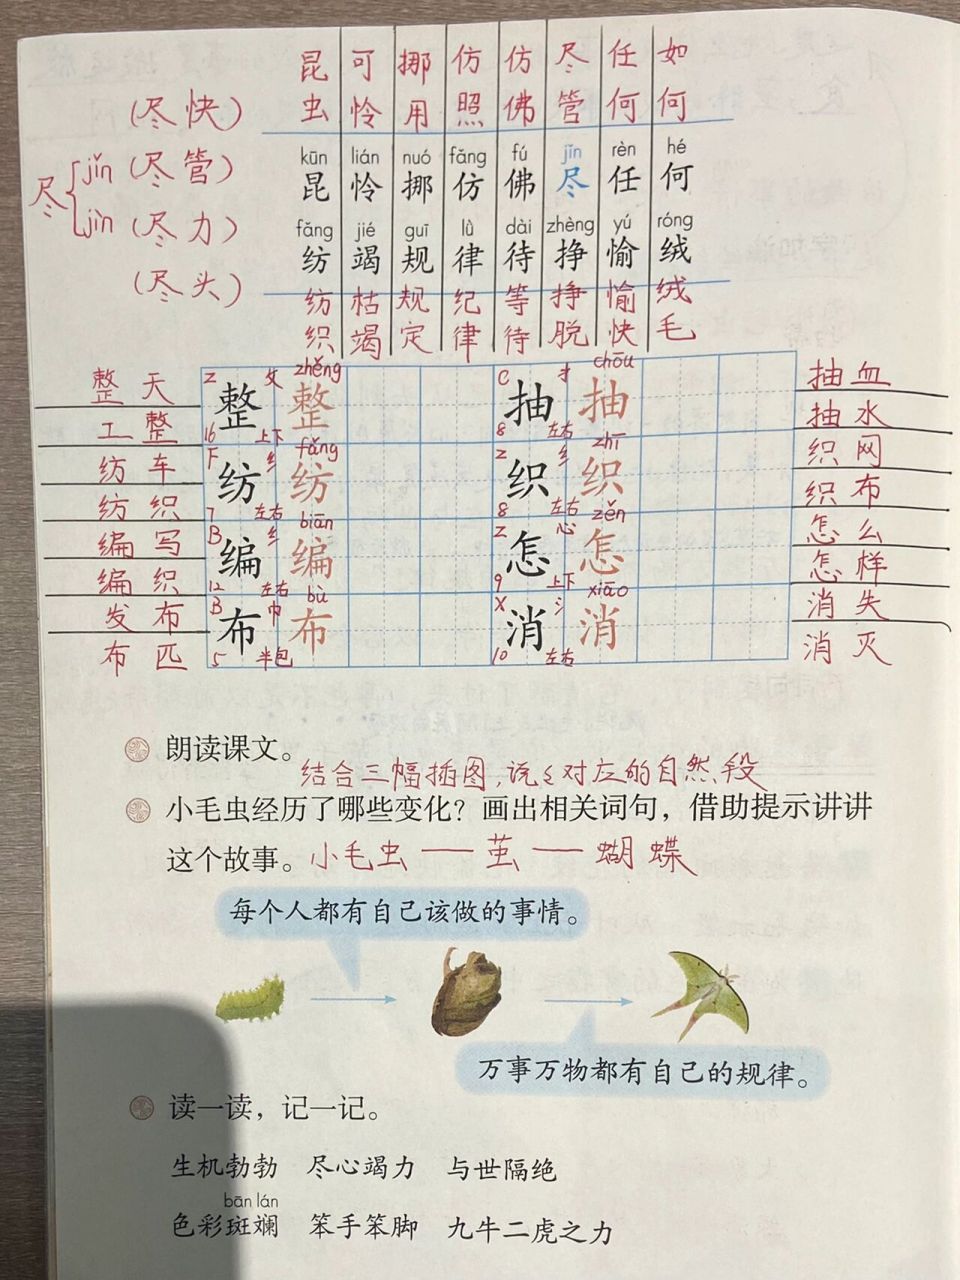 昆 可 挪 仿 仿 尽 任 如
虫 怜 用 照 佛 管 何 何
(尽快)
kūn lián nuó fǎng fú jǐn rèn hé
昆 怜 挪 仿 佛 尽 任 何
尽 jǐn (尽管)
jìn (尽力)
(尽头)
fǎng jié guī lǜ dài zhèng yú róng
纺 竭 规 律 待 挣 愉 绒
纺 枯 规 纪 等 挣 愉 绒
织 竭 定 律 待 脱 快 毛
整天 Z 整 攵 zhěng 整 16 上下 C 抽 扌 chōu 抽 8 左右 抽血
工整 抽水
纺车 F 纺 纟 fǎng 纺 7 左右 Z 织 纟 zhī 织 8 左右 织网
纺织 织布
编写 B 编 纟 biān 编 12 左右 Z 怎 心 zěn 怎 9 上下 怎么
编织 怎样
发布 B 布 巾 bù 布 5 半包 X 消 氵 xiāo 消 10 左右 消失
布匹 消灭
朗读课文。
结合三幅插图,说ミ对应的自然段
小毛虫经历了哪些变化？画出相关词句，借助提示讲讲
这个故事。小毛虫——茧——蝴蝶
每个人都有自己该做的事情。
万事万物都有自己的规律。
读一读，记一记。
生机勃勃 尽心竭力 与世隔绝
bān lán
色彩斑斓 笨手笨脚 九牛二虎之力